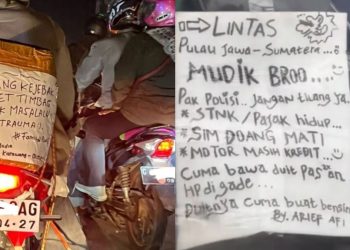 NG KEJEBAK
ET TIMBAG
MASALALU
TRAUMA!
AG
04·27
⇨ LINTAS
PULAU JAWA - SUMATERA...
MUDIK BROO....
PAK POLISI.. JANGAN TILANG YA..
* STNK / PAJAK HIDUP...
* SIM DOANG MATI
* MOTOR MASIH KREDIT...
CUMA BAWA DUIT PAS"AN
HP DIGADE...
DUITNYA CUMA BUAT BENSIN
BY. ARIEF AFI